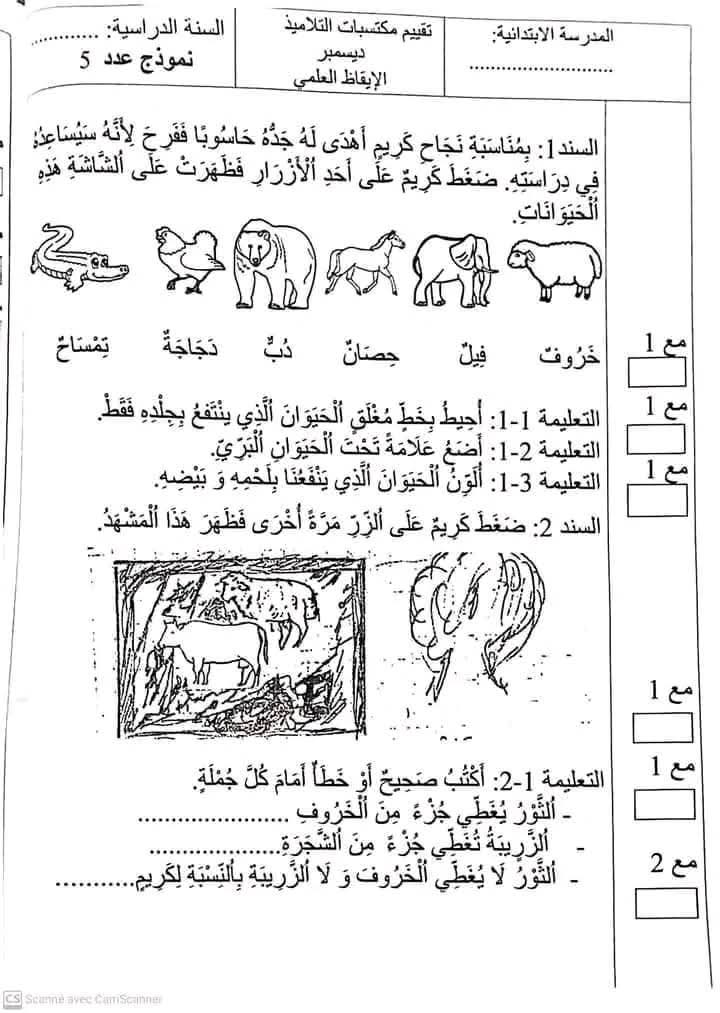 المدرسة الابتدائية:
..............................
تقييم مكتسبات التلاميذ
ديسمبر
الإيقاظ العلمي
السنة الدراسية: ..............
نموذج عدد 5
السند1: بِمُنَاسَبَةِ نَجَاحِ كَرِيمٍ أَهْدَى لَهُ جَدُّهُ حَاسُوبًا فَفَرِحَ لِأَنَّهُ سَيُسَاعِدُهُ
فِي دِرَاسَتِهِ. ضَغَطَ كَرِيمٌ عَلَى أَحَدِ اُلْأَزْرَارِ فَظَهَرَتْ عَلَى اُلشَّاشَةِ هَذِهِ
اُلْحَيَوَانَاتِ.
خَرُوفٌ فِيلٌ حِصَانٌ دُبٌّ دَجَاجَةٌ تِمْسَاحٌ
مع 1
التعليمة 1-1: أُحِيطُ بِخَطٍّ مُغْلَقٍ اُلْحَيَوَانَ اُلَّذِي يَنْتَفعُ بِجِلْدِهِ فَقَطْ.
مع 1
التعليمة 2-1: أَضَعُ عَلَامَةً تَحْتَ اُلْحَيَوانِ اُلْبَرِّيّ.
التعليمة 3-1: أُلَوِّنُ اُلْحَيَوَانَ اُلَّذِي يَنْفَعُنَا بِلَحْمِهِ وَ بَيْضِهِ.
مع 1
السند 2: ضَغَطَ كَرِيمٌ عَلَى اُلزِّرِّ مَرَّةً أُخْرَى فَظَهَرَ هَذَا اُلْمَشْهَدُ.
مع 1
التعليمة 1-2: أَكْتُبُ صَحِيحٌ أَوْ خَطَأٌ أَمَامَ كُلَّ جُمْلَةٍ.
مع 1
- اُلثَّوْرُ يُغَطِّي جُزْءً مِنَ اُلْخَرُوفِ .......................
- اُلزَّرِيبَةُ تُغَطِّي جُزْءً مِنَ اُلشَّجَرَةِ....................
مع 2
- اُلثَّوْرُ لَا يُغَطِّي اُلْخَرُوفَ وَ لَا اُلزَّرِيبَةِ بِاُلنِّسْبَةِ لِكَرِيمٍ............
CS Scanné avec CamScanner